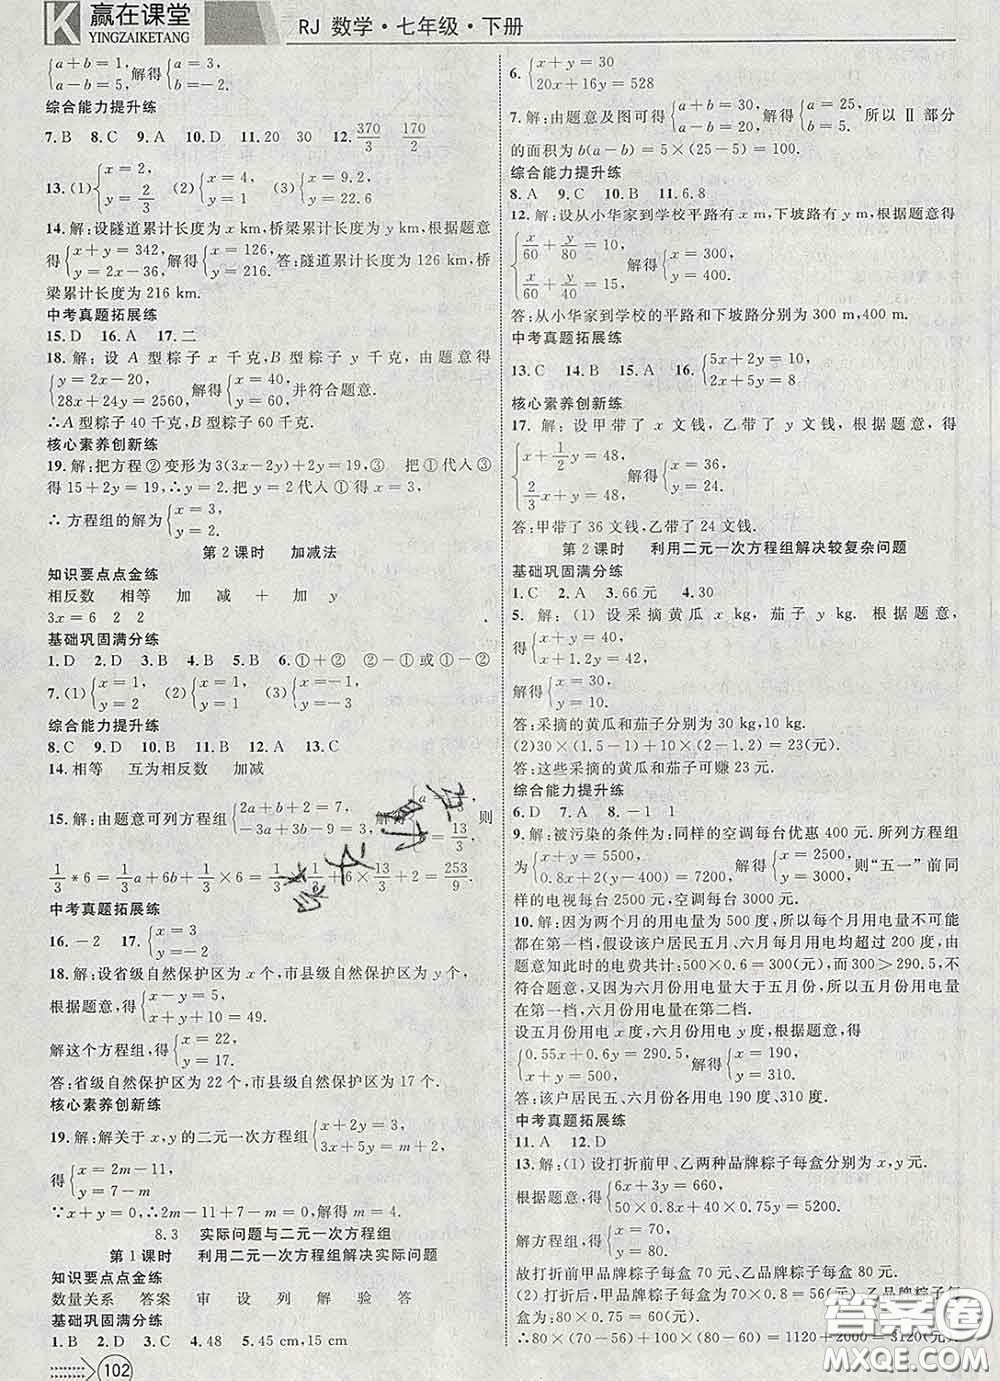 赢在课堂
YINGZAIKETANG
RJ 数学·七年级·下册
{a+b=1, a-b=5, 解得{a=3, b=-2.
综合能力提升练
7.B 8.C 9.A 10.D 11.20 30 12.370/3 170/2
13.(1){x=2, y=2/3 (2){x=4, y=1 (3){x=9.2, y=22.6
14.解:设隧道累计长度为 x km,桥梁累计长度为 y km,根据题意
得{x+y=342, y=2x-36, 解得{x=126, y=216. 答:隧道累计长度为 126 km,桥
梁累计长度为 216 km.
中考真题拓展练
15.D 16.A 17.二
18.解:设 A 型粽子 x 千克,B 型粽子 y 千克,由题意得
{y=2x-20, 28x+24y=2560, 解得{x=40, y=60, 并符合题意.
∴A 型粽子 40 千克,B 型粽子 60 千克.
核心素养创新练
19.解:把方程②变形为 3(3x-2y)+2y=19,③ 把①代入③
得 15+2y=19,∴y=2. 把 y=2 代入①得 x=3,
∴方程组的解为{x=3, y=2.
第 2 课时 加减法
知识要点点金练
相反数 相等 加 减 + 加 y
3x=6 2 2
基础巩固满分练
1.D 2.D 3.B 4.B 5.B 6.①+② ②-①或①-②
7.(1){x=1, y=1 (2){x=1, y=1 (3){x=-1, y=-3
综合能力提升练
8.C 9.D 10.B 11.B 12.A 13.C
14.相等 互为相反数 加减
15.解:由题意可列方程组{2a+b+2=7, -3a+3b-3=9, =13/3. 则
1/3*6=1/3a+6b+1/3×6=1/3×1/3+6×13/3+2=253/9.
中考真题拓展练
16.-2 17.{x=3 y=-2
18.解:设省级自然保护区为 x 个,市县级自然保护区为 y 个.
根据题意,得{x-y=5, x+y+10=49.
解这个方程组,得{x=22, y=17.
答:省级自然保护区为 22 个,市县级自然保护区为 17 个.
核心素养创新练
19.解:解关于 x,y 的二元一次方程组{x+2y=3, 3x+5y=m+2,
得{x=2m-11, y=7-m.
∵x+y=0,∴2m-11+7-m=0,解得 m=4.
8.3 实际问题与二元一次方程组
第 1 课时 利用二元一次方程组解决实际问题
知识要点点金练
数量关系 答案 审 设 列 解 验 答
基础巩固满分练
1.B 2.D 3.D 4.48 5.45 cm,15 cm
102
6.{x+y=30 20x+16y=528
7.解:由题意及图可得{a+b=30, a-b=20, 解得{a=25, b=5. 所以Ⅱ部分
的面积为 b(a-b)=5×(25-5)=100.
综合能力提升练
8.A 9.C 10.B 11.6.8
12.解:设从小华家到学校平路有 x m,下坡路有 y m,根据题意得
{x/60+y/80=10, x/60+y/40=15, 解得{x=300, y=400.
答:从小华家到学校的平路和下坡路分别为 300 m,400 m.
中考真题拓展练
13.C 14.B 15.A 16.{5x+2y=10 2x+5y=8
核心素养创新练
17.解:设甲带了 x 文钱,乙带了 y 文钱,根据题意,得
{x+1/2y=48, 2/3x+y=48, 解得{x=36, y=24.
答:甲带了 36 文钱,乙带了 24 文钱.
第 2 课时 利用二元一次方程组解决较复杂问题
基础巩固满分练
1.C 2.A 3.66元 4.30
5.解:(1)设采摘黄瓜 x kg,茄子 y kg. 根据题意,
得{x+y=40, x+1.2y=42.
解得{x=30, y=10.
答:采摘的黄瓜和茄子分别为 30 kg,10 kg.
(2)30×(1.5-1)+10×(2-1.2)=23(元).
答:这些采摘的黄瓜和茄子可赚 23 元.
综合能力提升练
6.D 7.A 8.-1 1
9.解:被污染的条件为:同样的空调每台优惠 400 元.所列方程组
为{x+y=5500, 0.8x+2(y-400)=7200, 解得{x=2500, y=3000. 则“五一”前同
样的电视每台 2500 元,空调每台 3000 元.
10.解:因为两个月的用电量为 500 度,所以每个月用电量不可能
都在第一档,假设该户居民五月、六月每月用电均超过 200 度,由
题意知此时的电费共计:500×0.6=300(元),而 300>290.5,不
符合题意,又因为六月份用电量大于五月份,所以五月份用电量
在第一档,六月份用电量在第二档.
设五月份用电 x 度,六月份用电 y 度,根据题意,得
{0.55x+0.6y=290.5, x+y=500, 解得{x=190, y=310.
答:该户居民五、六月份各用电 190 度、310 度.
中考真题拓展练
11.A 12.D
13.解:(1)设打折前甲、乙两种品牌粽子每盒分别为 x,y 元.
根据题意,得{6x+3y=660, 50×0.8x+40×0.75y=5200,
解方程组,得{x=70, y=80.
故打折前甲品牌粽子每盒 70 元,乙品牌粽子每盒 80 元.
(2)打折后,甲品牌粽子每盒为 70×0.8=56(元),乙品牌粽子每
盒
∴80×(70-56)+100×(80-60)=1120+2000=3120(元).
答案圈
MXQE.COM